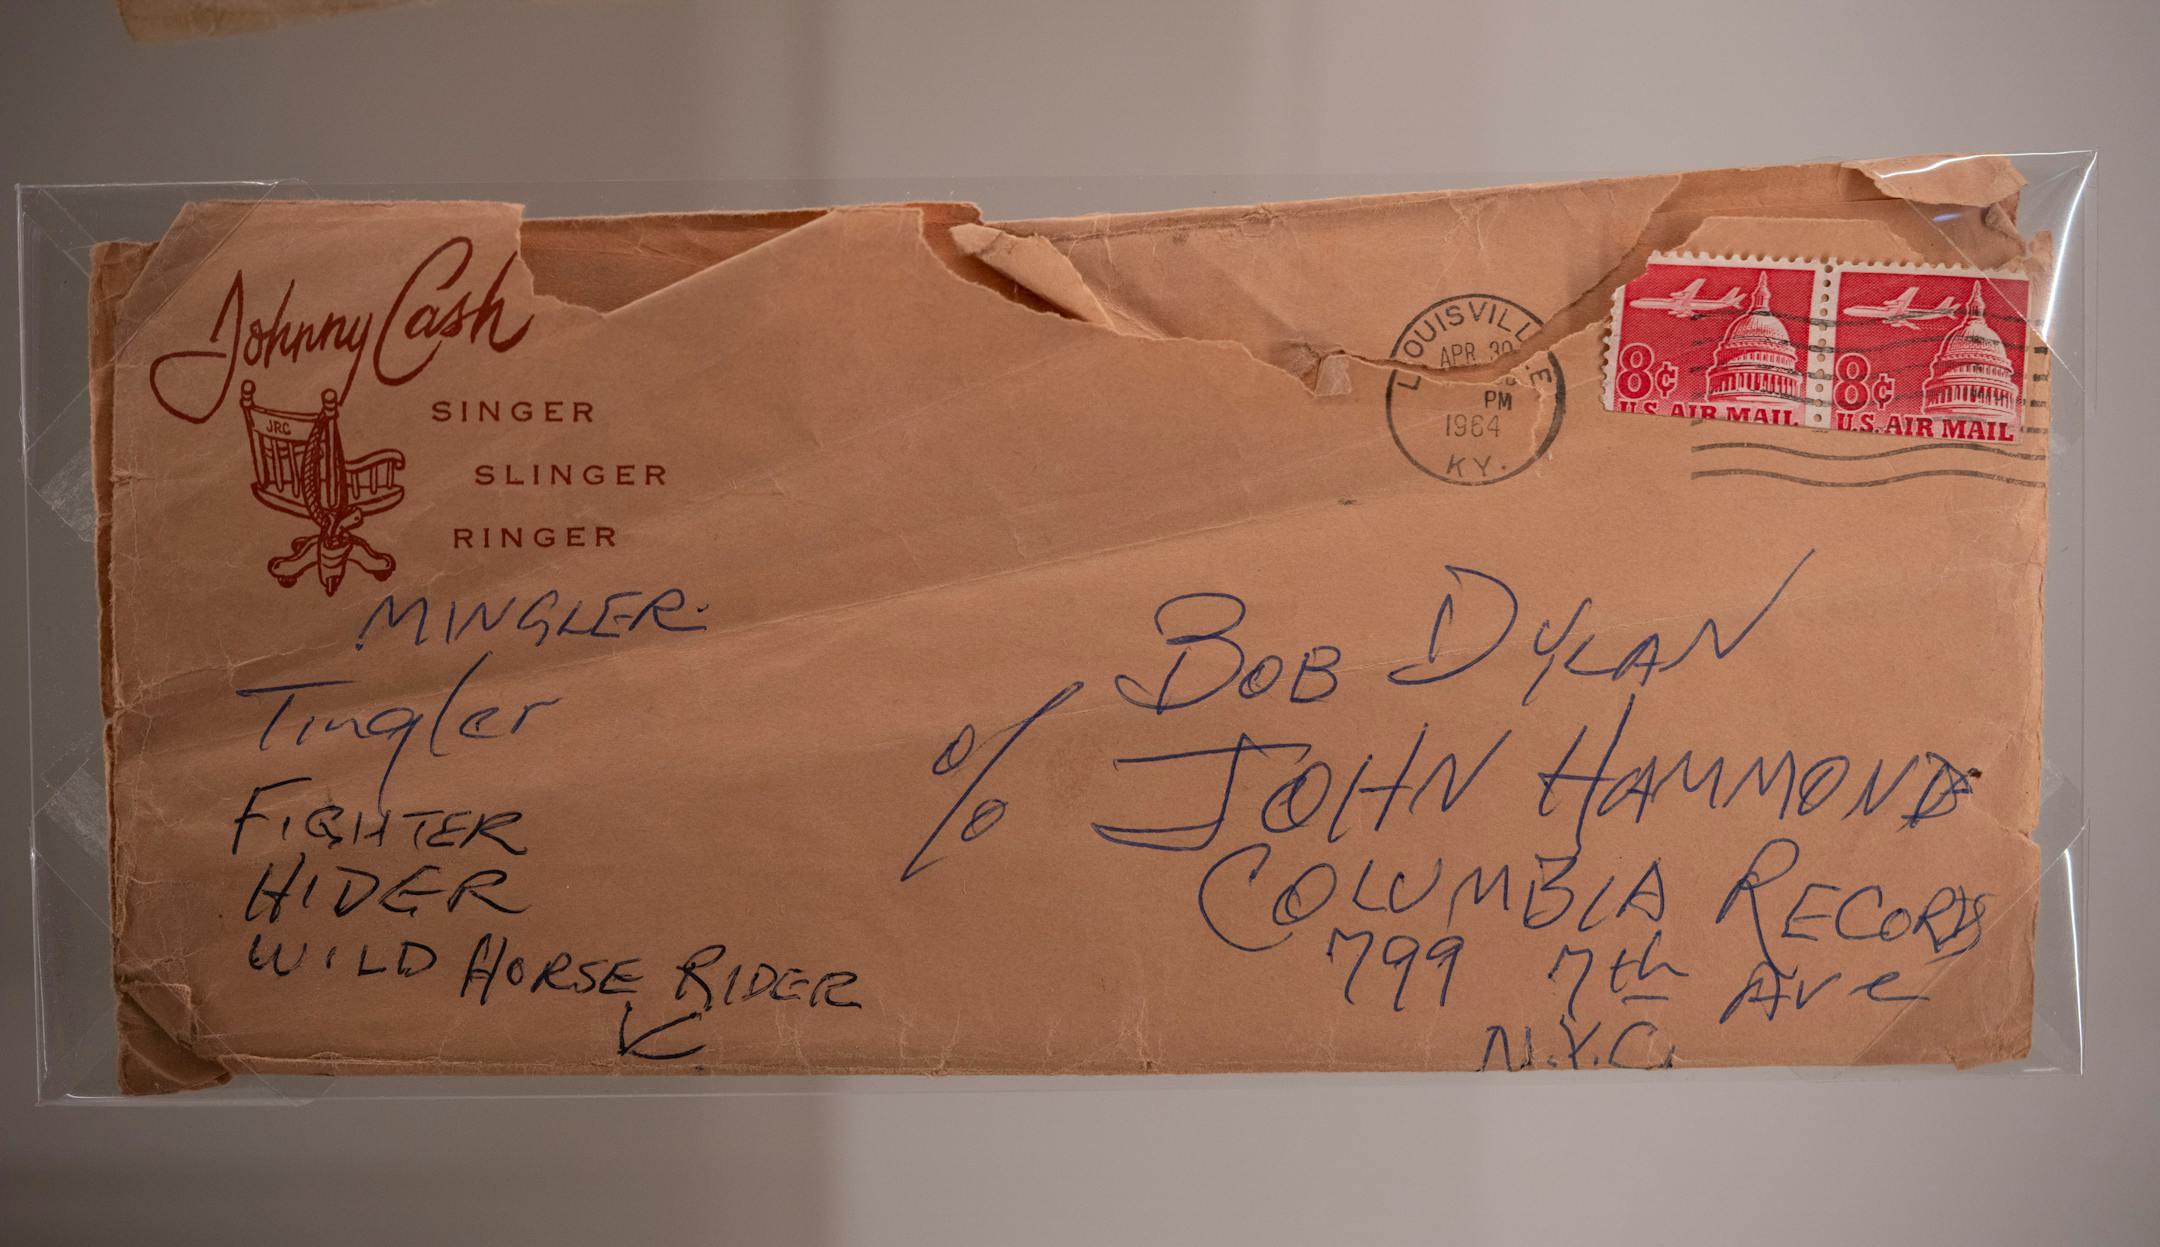 Johnny Cash
JRC
SINGER
SLINGER
RINGER
MINGLER.
Tingler
FIGHTER
HIDER
WILD HORSE RIDER
LOUISVILLE
APR 30
PM
1964
KY.
8¢
U.S. AIR MAIL
8¢
U.S. AIR MAIL
BOB DYLAN
% JOHN HAMMOND
COLUMBIA RECORDS
799 7th Ave
N.Y.C.